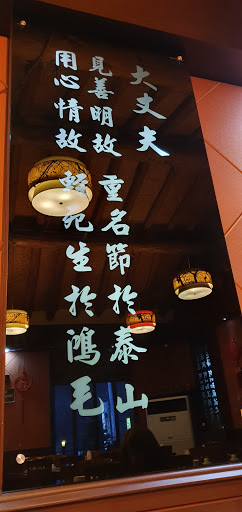 大丈夫
見善明故 重名節於泰山
用心情故 輕死生於鴻毛